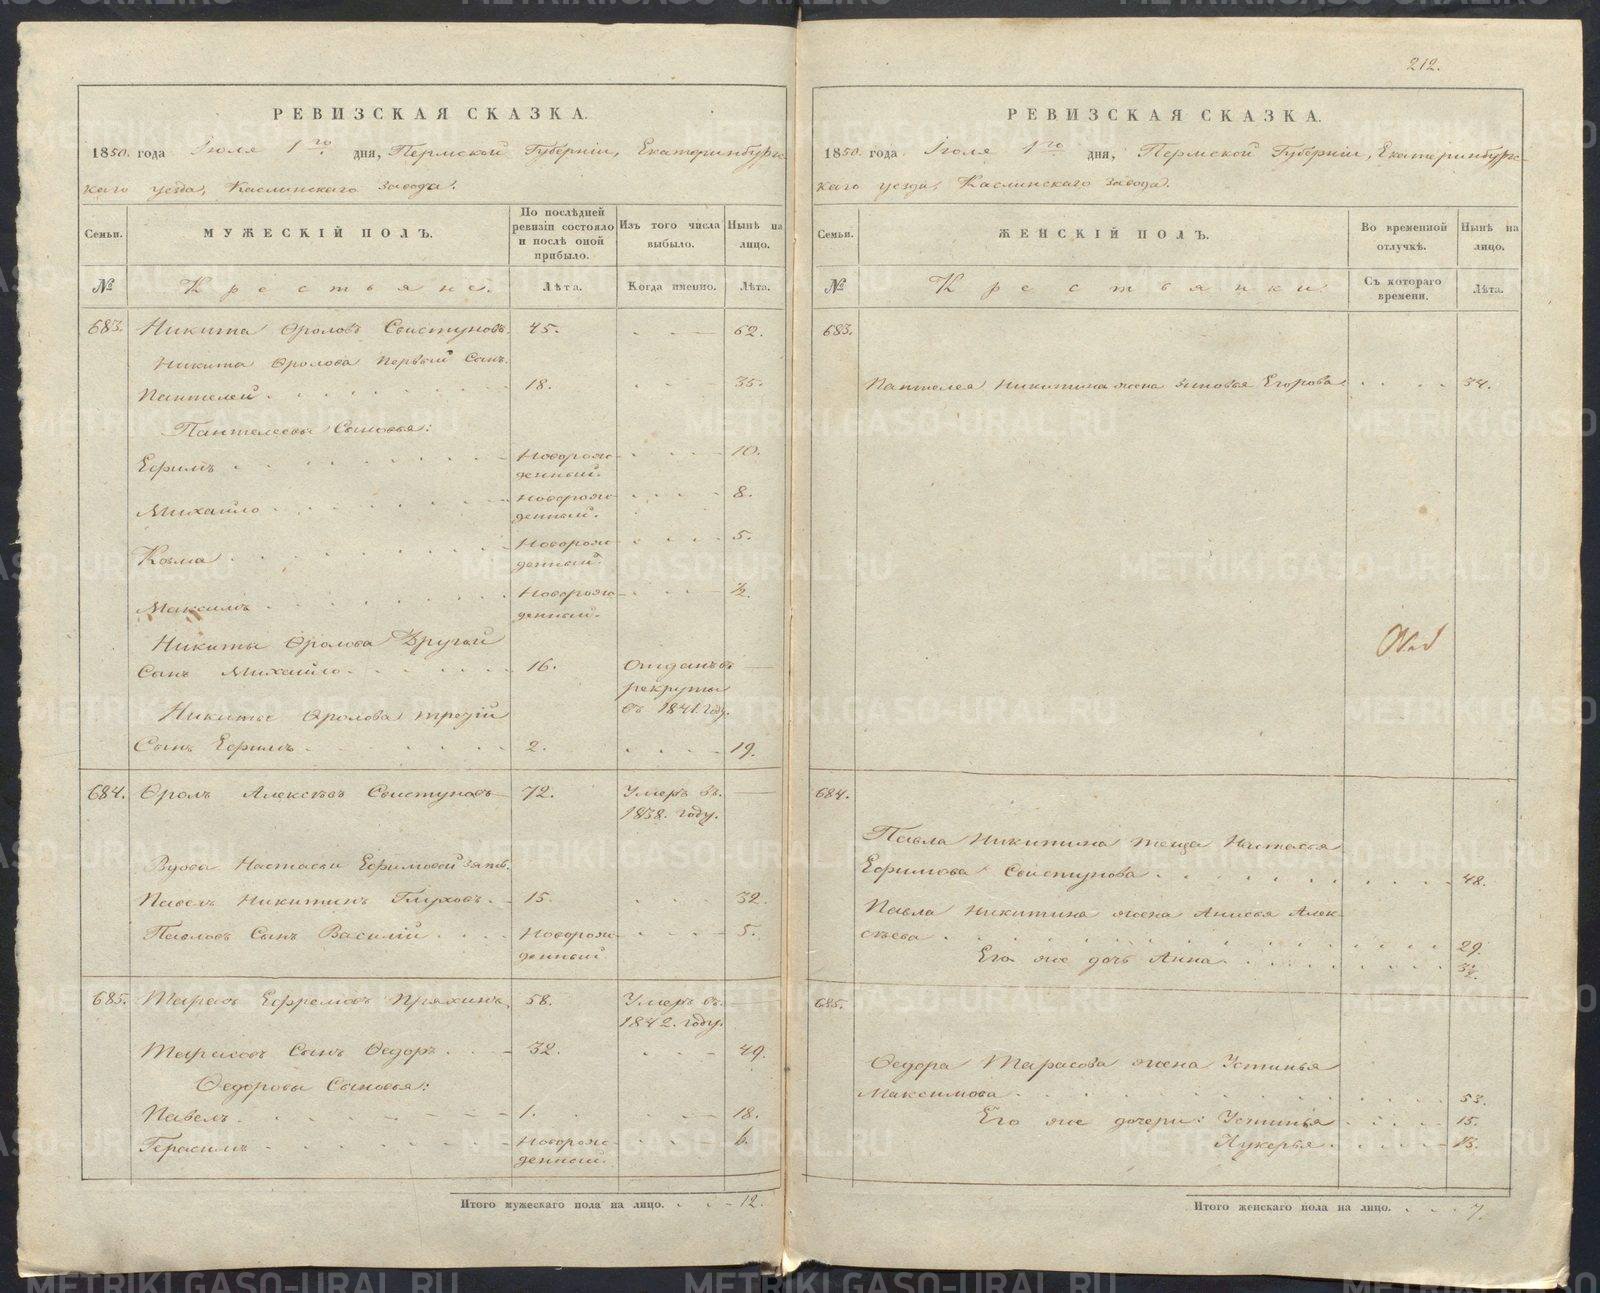 212.
РЕВИЗСКАЯ СКАЗКА.
1850. года Іюля 1го дня, Пермской Губерніи, Екатеринбургс-
каго уезда, Каслинскаго завода.
Семьи.
МУЖЕСКІЙ ПОЛЪ.
По послѣдней ревизіи состояло и послѣ оной прибыло.
Изъ того числа выбыло.
Нынѣ на лицо.
№
Крестьяне.
Лѣта.
Когда именно.
Лѣта.
683. Никита Ѳроловъ Свистуновъ. 45. 62.
Никита Ѳролова первый Сынъ.
Пантелей 18. 35.
Пантелеевы Сыновья:
Ефимъ Новорож- 10.
денный.
Михайло Новорож- 8.
денный.
Козма Новорож- 5.
денный.
Максимъ Новорож- ½.
денный.
Никиты Ѳролова Другой
Сынъ Михайло 16. Отданъ въ
рекруты
въ 1841. году.
Никиты Ѳролова третій
Сынъ Ефимъ 2. 19.
684. Ѳролъ Алексѣевъ Свистуновъ 72. Умеръ въ
1838. году.
Вдовы Настасьи Ефимовой зять.
Павелъ Никитинъ Глуховъ. 15. 32.
Павловъ Сынъ Василій Новорож- 5.
денный
685. Тарасъ Ефремовъ Пряхинъ, 58. Умеръ въ
1842. году.
Тарасовъ Сынъ Ѳедоръ 32. 49.
Ѳедоровы Сыновья:
Павелъ 1. 18.
Герасимъ Новорож- 6.
денный.
Итого мужескаго пола на лицо. 12.
РЕВИЗСКАЯ СКАЗКА.
1850. года Іюля 1го дня, Пермской Губерніи, Екатеринбургс-
каго уезда, Каслинскаго завода.
Семьи.
ЖЕНСКІЙ ПОЛЪ.
Во временной отлучкѣ.
Нынѣ на лицо.
№
Крестьянки
Съ котораго времени.
Лѣта.
683.
Пантелея Никитина жена Зиновья Егорова 34.
684.
Павла Никитина теща Настасья
Ефимова Свистунова 48.
Павла Никитина жена Анисья Алек-
сѣева 29.
Его же дочь Анна
685.
Ѳедора Тарасова жена Устинья
Максимова 53.
Его же дочери: Устинья 15.
Лукерья 13.
Итого женскаго пола на лицо. 7.
METRIKI.GASO-URAL.RU